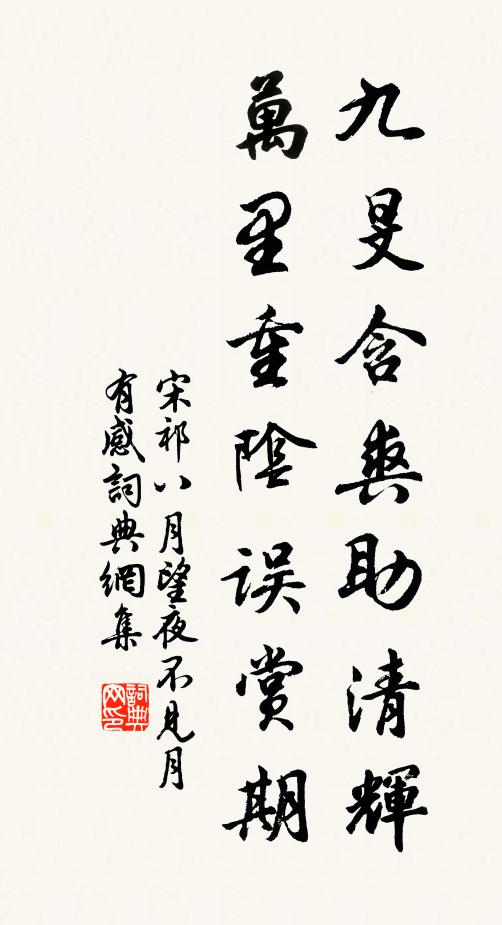 九旻含爽助清輝
萬里重陰誤賞期
宋祁八月望夜不見月
有感詞典網集
詞典网印